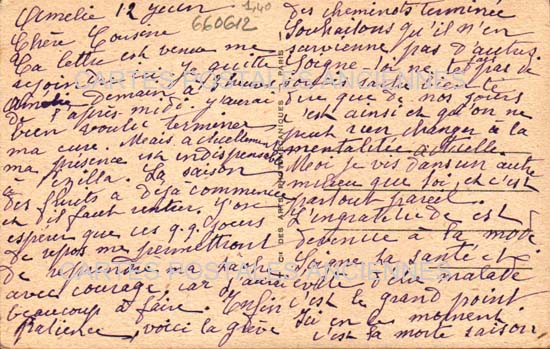 Amélie 12 Juin
660612
1,40
Chère Cousine
Ta lettre est venue me
rejoindre ici. Je quitte
Amélie Demain à 2 heures
de l'après-midi. J'aurai
bien voulu terminer
ma cure. Mais actuellement
ma présence est indispensable
à Pézilla. La saison
des fruits a déjà commencé
et il faut rentrer. J'ose
espérer que ces q.q. jours
de repos me permettront
de reprendre ma tâche
avec courage, car j'aurai
beaucoup à faire. Enfin
Patience, voici la grève
des cheminots terminée
Souhaitons qu'il n'en
survienne pas d'autres.
Soigne-toi ne te fais pas de
Que de nos jours
c'est ainsi et qu'on ne
peut rien changer à la
mentalité actuelle.
Moi je vis dans un autre
milieu que toi, et c'est
partout pareil.
L'ingratitude est
devenue à la mode
Soigne ta santé et
d'être malade
c'est le grand point
Ici en ce moment
c'est la morte saison
CH DES ARTS PHOTOMÉCANIQUES PARIS
CARTES POSTALES ANCIENNES
CARTES POSTALES ANCIENNES